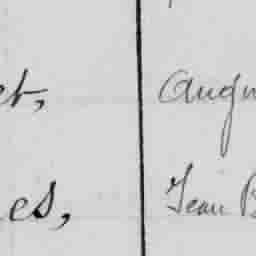 et, Augu
es, Jean B